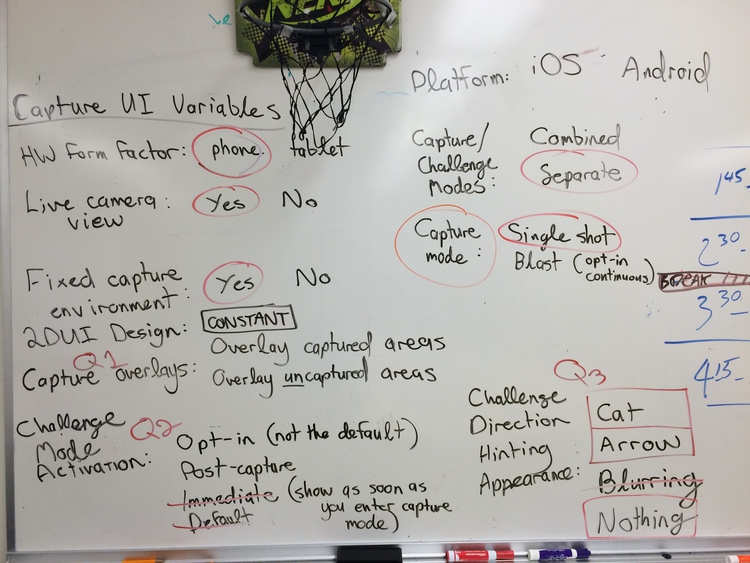 Capture UI Variables
HW Form Factor: phone tablet
Live camera view: Yes No
Fixed capture environment: Yes No
2DUI Design: CONSTANT
Q1
Capture overlays: Overlay captured areas
Overlay uncaptured areas
Q2
Challenge Mode Activation:
Opt-in (not the default)
Post-capture
Immediate (show as soon as
Default you enter capture
mode)
Platform: iOS Android
Capture/ Combined
Challenge Separate
Modes:
Capture Single shot
mode: Blast (opt-in
continuous)
Q3
Challenge Cat
Direction Arrow
Hinting
Appearance: Blurring
Nothing
145-
230-
BREAK
330-
415-